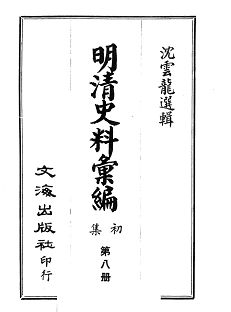 沈雲龍選輯
明清史料彙編
初集
第八册
文海出版社印行